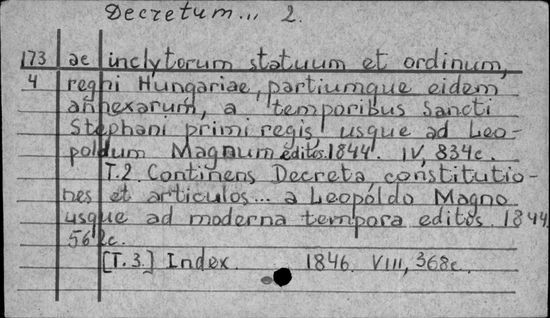 Decretum... 2.
173 ae inclytorum statuum et ordinum,
4 regni Hungariae, partiumque eidem
annexarum, a temporibus Sancti
Stephani primi regis usque ad Leo-
poldum Magnum editos. 1844. IV, 834c.
T.2 Continens Decreta, constitutio-
nes et articulos... a Leopoldo Magno
usque ad moderna tempora editos. 1844
562c.
[T.3.] Index. 1846. VIII, 368c.